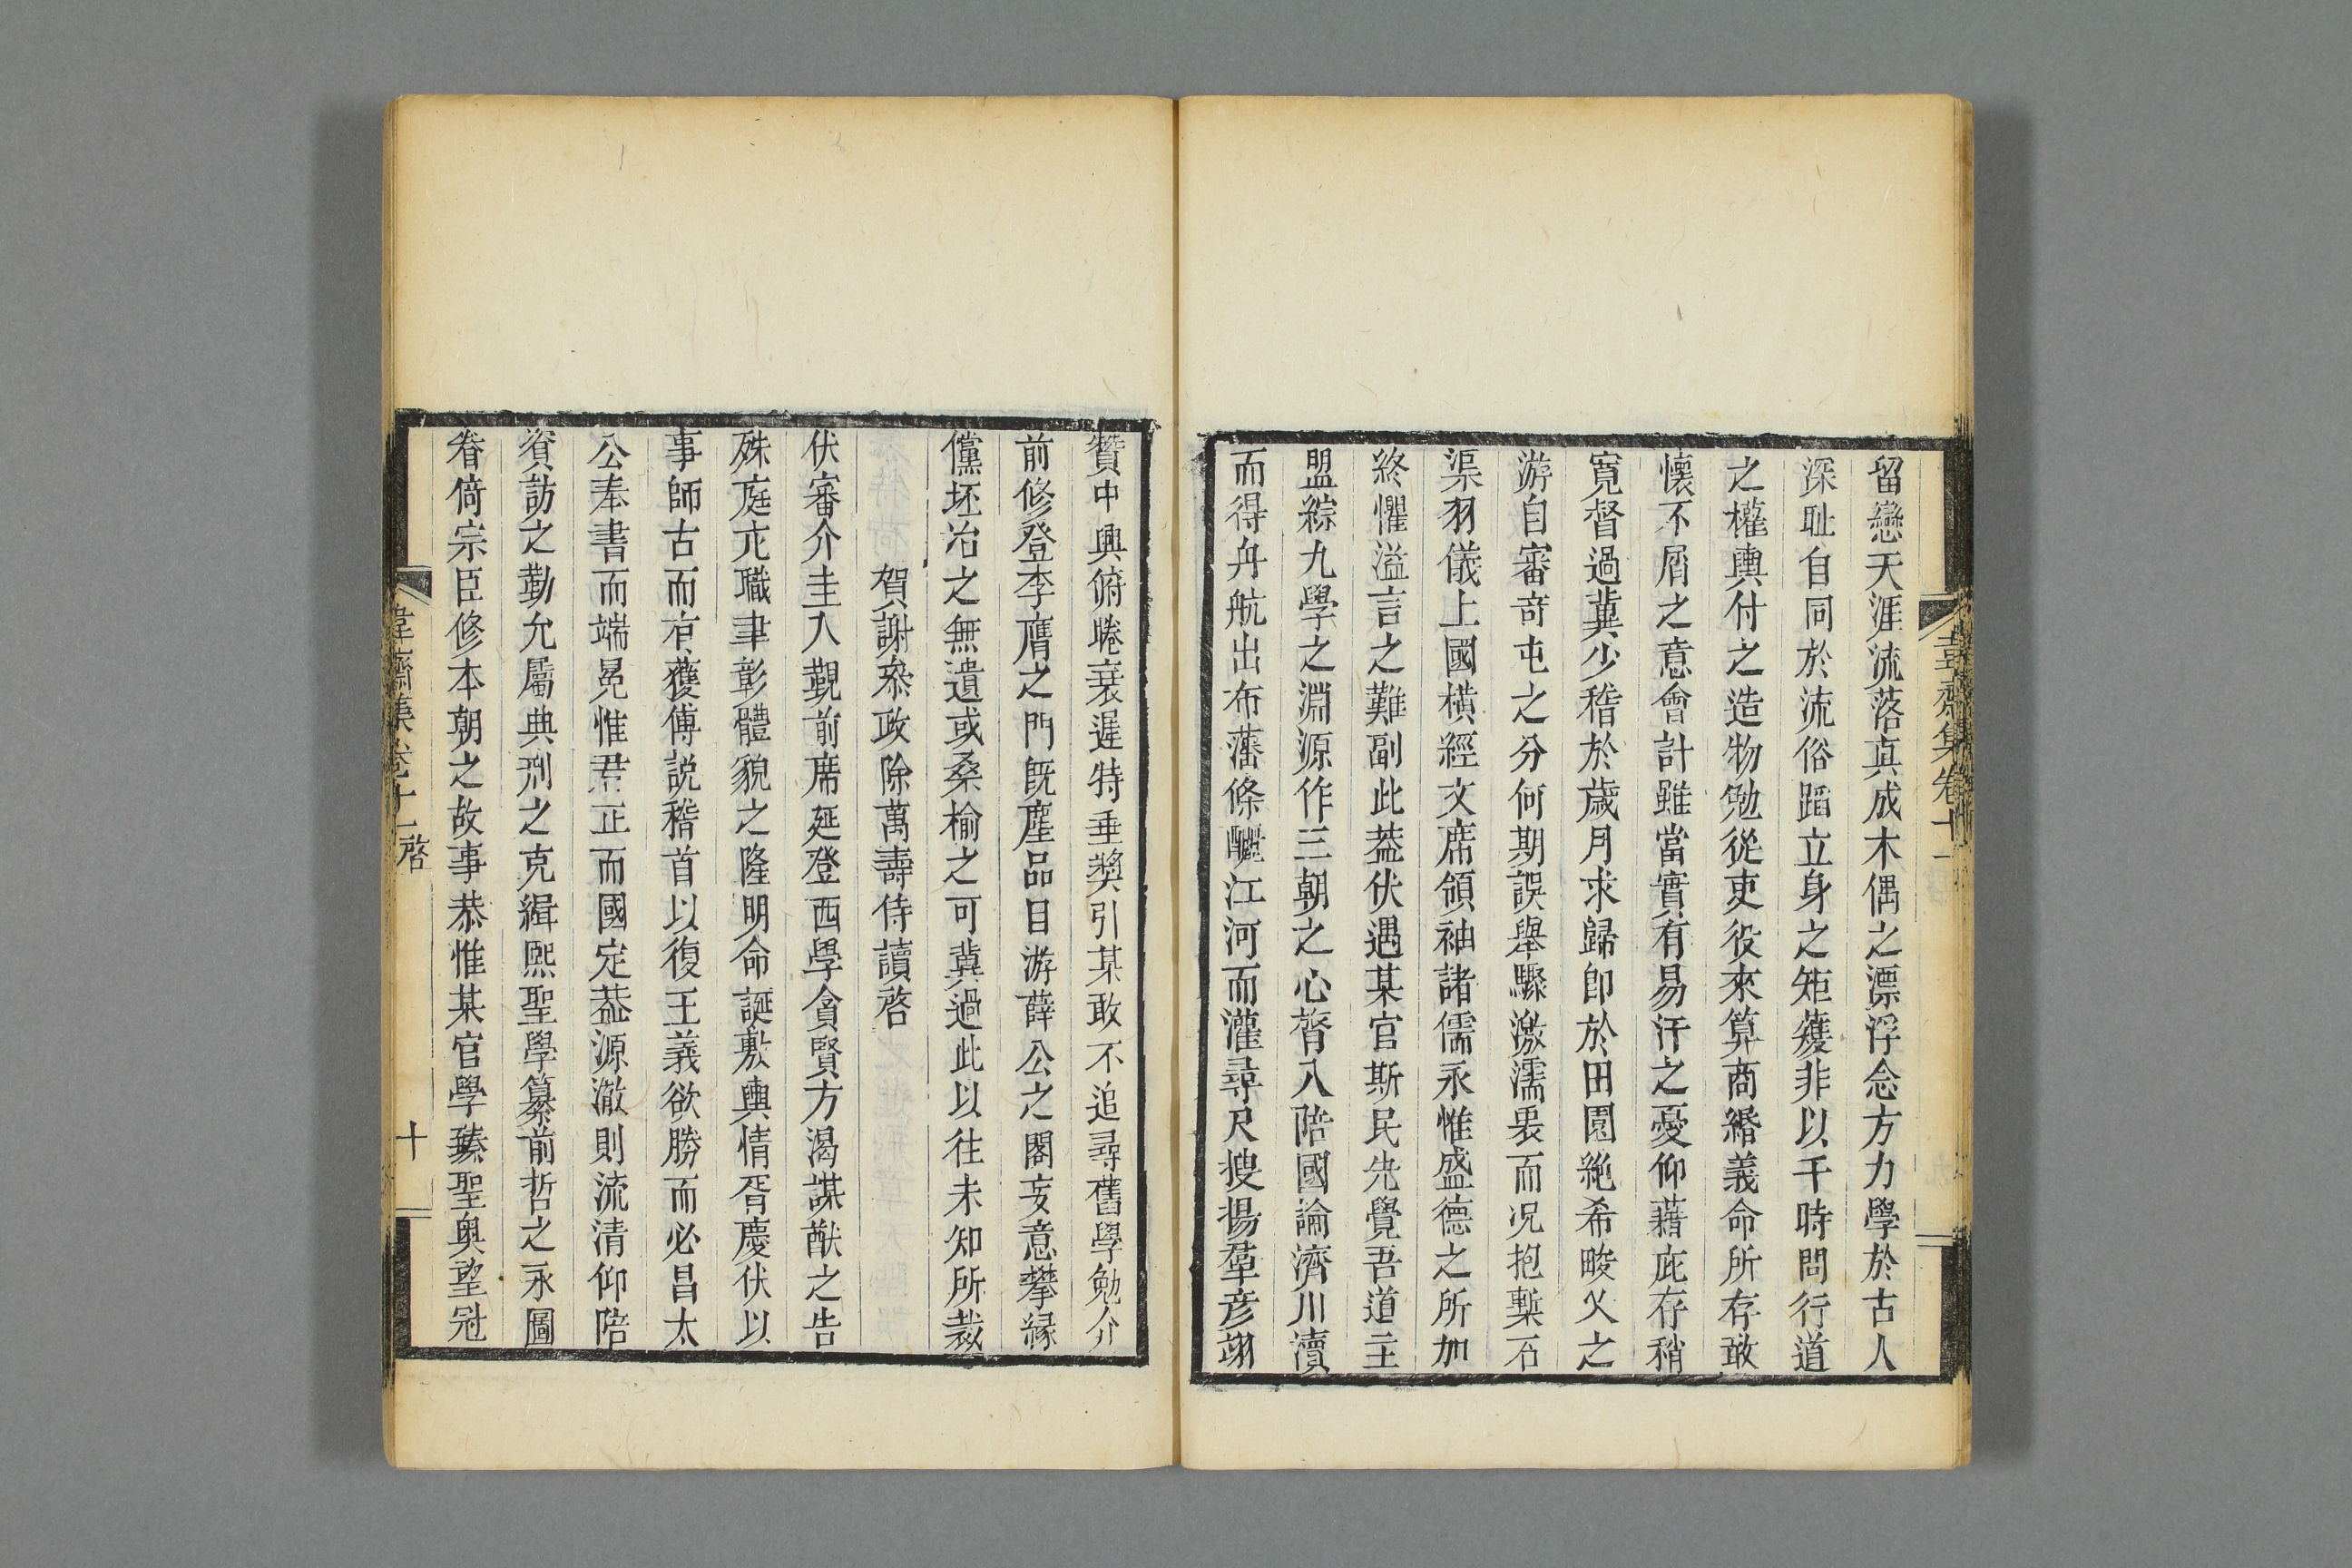 留戀天涯流落真成木偶之漂浮念方力學於古人
深耻自同於流俗蹈立身之矩矱非以干時問行道
之權輿付之造物勉從吏役來算商緡義命所存敢
懷不屑之意會計雖當實有易汗之憂仰藉庇存稍
寬督過冀少稽於歲月求歸卽於田園絶希畯父之
游自審奇屯之分何期誤舉驟激濡褁而况抱槧石
渠羽儀上國橫經文席領袖諸儒永惟盛德之所加
終懼溢言之難副此葢伏遇某官斯民先覺吾道主
盟綜九學之淵源作三朝之心膂入陪國論濟川瀆
而得舟航出布藩條釃江河而灌尋尺搜揚羣彦翊
韋齋集卷十一
贊中興俯睠衰遲特垂奬引某敢不追尋舊學勉介
前修登李膺之門旣塵品目游薛公之閣妄意攀縁
儻坯冶之無遺或桑榆之可冀過此以往未知所裁
賀謝叅政除萬壽侍讀啓
伏審介圭入覲前席延登西學貪賢方渴謀猷之告
殊庭亢職聿彰體貌之隆明命誕敷輿情胥慶伏以
事師古而有獲傅説稽首以復王義欲勝而必昌太
公奉書而端冕惟君正而國定葢源澈則流清仰陪
資訪之勤允屬典刑之克緝熙聖學纂前哲之永圖
眷倚宗臣修本朝之故事恭惟某官學臻聖奥望冠
韋齋集卷十一啓
十